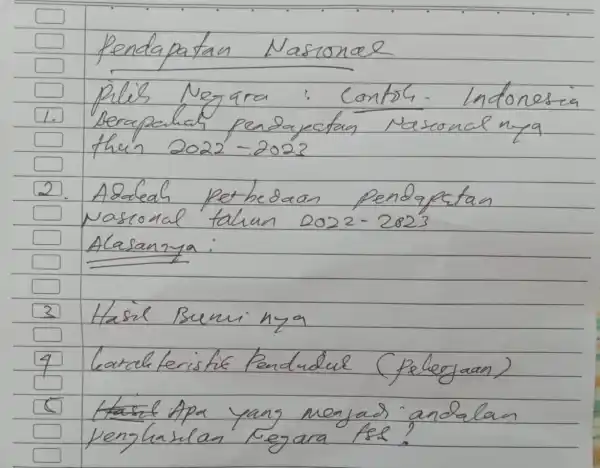 Pendapatan Nasional
Pilih Negara : Contoh - Indonesia
1. Berapakah pendapatan Nasional nya
thun 2022 - 2023
2. Adakah perbedaan pendapatan
Nasional tahun 2022 - 2023
Alasannya :
3 Hasil Bumi nya
4 Karakteristik Penduduk (Pekerjaan)
5 Hasil Apa yang menjadi andalan
penghasilan Negara tsb ?